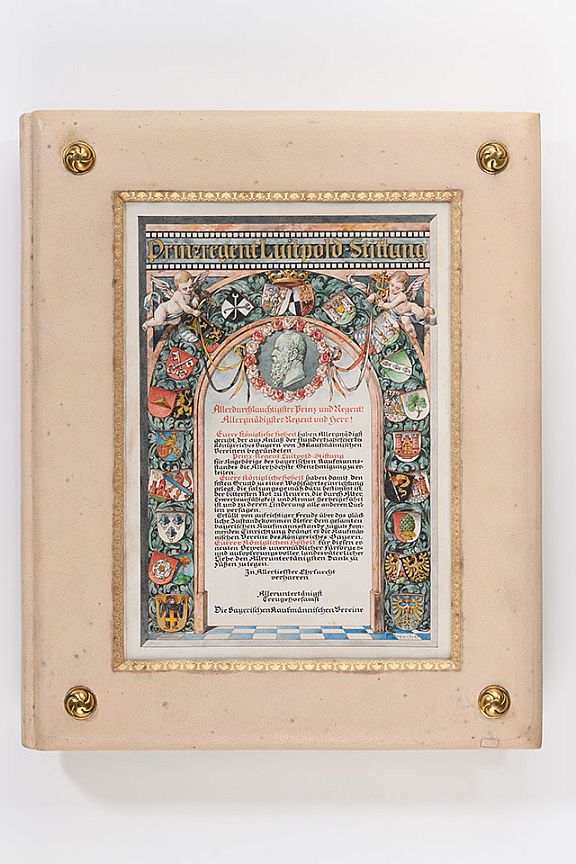 Prinzregent Luitpold-Stiftung
Allerdurchlauchtigster Prinz und Regent!
Allergnädigster Regent und Herr!
Euere Königliche Hoheit haben Allergnädigst
geruht, der aus Anlaß der Hundertjahrfeier des
Königreiches Bayern von 38 Kaufmännischen
Vereinen begründeten
Prinz-Regent Luitpold-Stiftung
für Angehörige des bayerischen Kaufmanns-
standes die Allerhöchste Genehmigung zu er-
teilen.
Euere Königliche Hoheit haben damit den
festen Grund zu einer Wohlfahrtseinrichtung
gelegt, die satzungsgemäß dazu bestimmt ist,
der bittersten Not zu steuern, die durch Alter,
Erwerbsunfähigkeit und Armut herbeigeführt
ist und zu deren Linderung alle anderen Quel-
len versagen.
Erfüllt von aufrichtiger Freude über das glück-
liche Zustandekommen dieser dem gesamten
bayerischen Kaufmannsstande zugute kom-
menden Einrichtung drängt es die Kaufmän-
nischen Vereine des Königreiches Bayern,
Euerer Königlichen Hoheit für diesen er-
neuten Beweis unermüdlicher Fürsorge
und aufopferungsvoller, landesväterlicher
Liebe den Alleruntertänigsten Dank zu
Füßen zu legen.
In Allertiefster Ehrfurcht
verharren
Alleruntertänigst
Treugehorsamst
Die Bayerischen Kaufmännischen Vereine